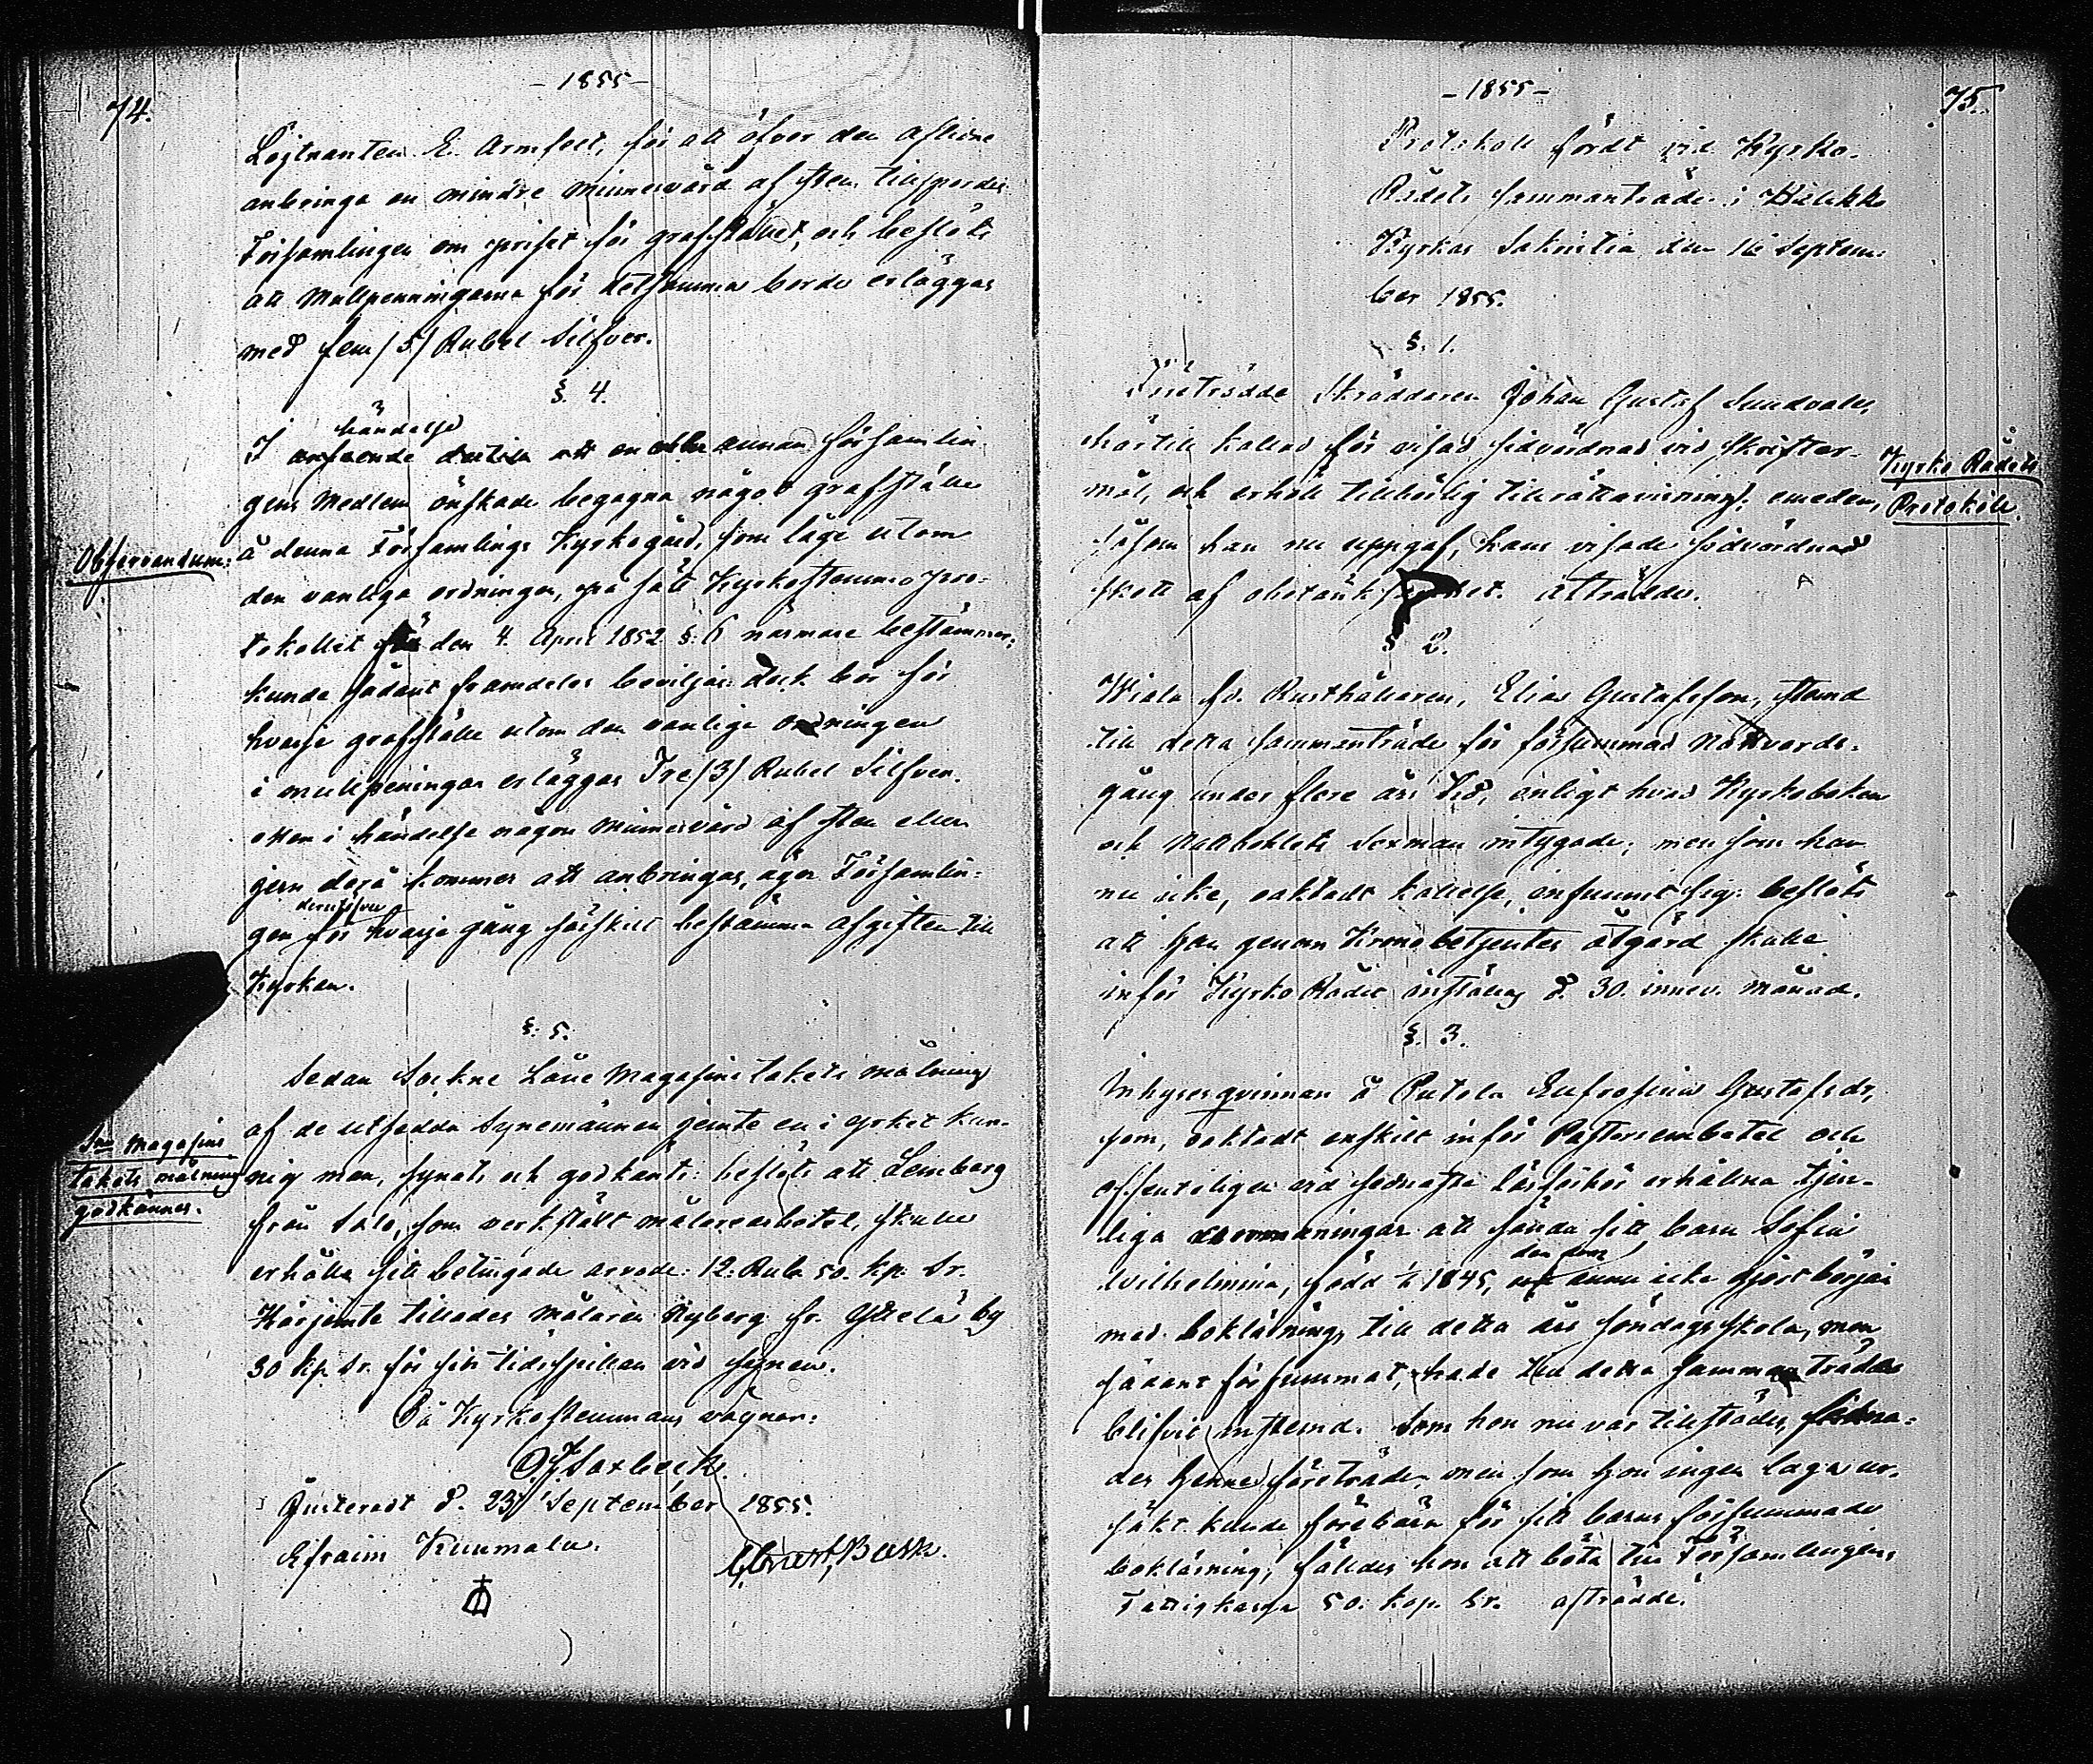 -1855-
74.
Löjtnanten E. Armfelt, för att öfver den aflidne
anbringa en mindre minnesvård af sten tillsporde
Församlingen om priset för grafstället, och beslöts
att Mullpenningarna för detsamma borde erläggas
med fem /5/ Rubel Silfver.
§. 4.
händelse
I anseende dertill att en eller annan församlin-
gens Medlem önskade begagna något grafställe
Observandum:
å denna Församlings Kyrkogård, som låge utom
den vanliga ordningen, på sätt Kyrkostämmo pro-
tokollet från den 4. April 1852 §. 6 närmare bestämmer;
kunde sådant framdeles beviljas: dock bör för
hvarje grafställe utom den vanliga ordningen
i mullpeningar erläggas Tre /3/ Rubel Silfver.
Men i händelse någon Minnesvård af sten eller
jern derå kommer att anbringas, äger Församlin-
derutöfver
gen för hvarje gång särskilt bestämma afgiften till
Kyrkan.
§. 5.
Sedan Sockne Låne Magasins takets målning
af de utsedda Synemännen jemte en i yrket kun-
Sne Magasins
takets målning
godkännes.
nig man, synats och godkänts: beslöts att Lemberg
från Salo, som verkstält målarearbetet, skulle
erhålla sitt betingade arvode: 12. Rub. 50. kp. Sr.
Härjemte tillades målaren Nyberg fr. Yltelä by
30 kp. Sr. för sin tidsspillan vid synen.
På Kyrkostemmans vägnar:
O. J. Saxbeck.
Justeradt d. 23 September 1855.
Efraim Kuumala.
-1855-
75.
Protokoll fördt vid Kyrko-
Rådets sammanträde i Halikko
Kyrkas Sakristia den 16 Septem-
ber 1855.
§. 1.
Företrädde Skräddaren Johan Gustaf Sundvall,
härtill kallad för visad sidvördnad vid skrifter-
Kyrko Rådets
Protokoll.
mål, och erhöll tillbörlig tillrättavisning: emedan,
såsom han nu uppgaf, hans visade sidvördnad
skett af obetänksamhet. Afträdde.
§ 2.
Wiala fd. Rusthållaren, Elias Gustafsson, stämd
till detta sammanträde för försummad Nattvards-
gång under flere års tid, enligt hvad Kyrkoboken
och Nattboklets Sexman intygade; men som han
nu icke, oaktadt kallelse, infunnit sig: beslöts
att han genom Kronobetjentes åtgärd skulle
inför Kyrko Rådet inställas d. 30. innev. månad.
§. 3.
Inhyses qvinnan å Putola Eufrosina Gustafsdr,
som, oaktadt enskilt inför Pastorsembetet och
offentligen vid sednaste läsförhör erhållna tjen-
liga aromaningar att sända sitt barn Sofia
den som
Wilhelmina, född 1/6 1845, ännu icke gjort början
med bokläsning, till detta års söndagsskola, men
sådant försummat, hade till detta sammanträde
blifvit instemd. Som hon nu var tillstädes,
des henne företräde, men som hon ingen laga ur-
säkt kunde förebära för sitt barns försummade
bokläsning, fälldes hon att böta till Församlingens
Fattigkassa 50. kop. Sr. afträdde.